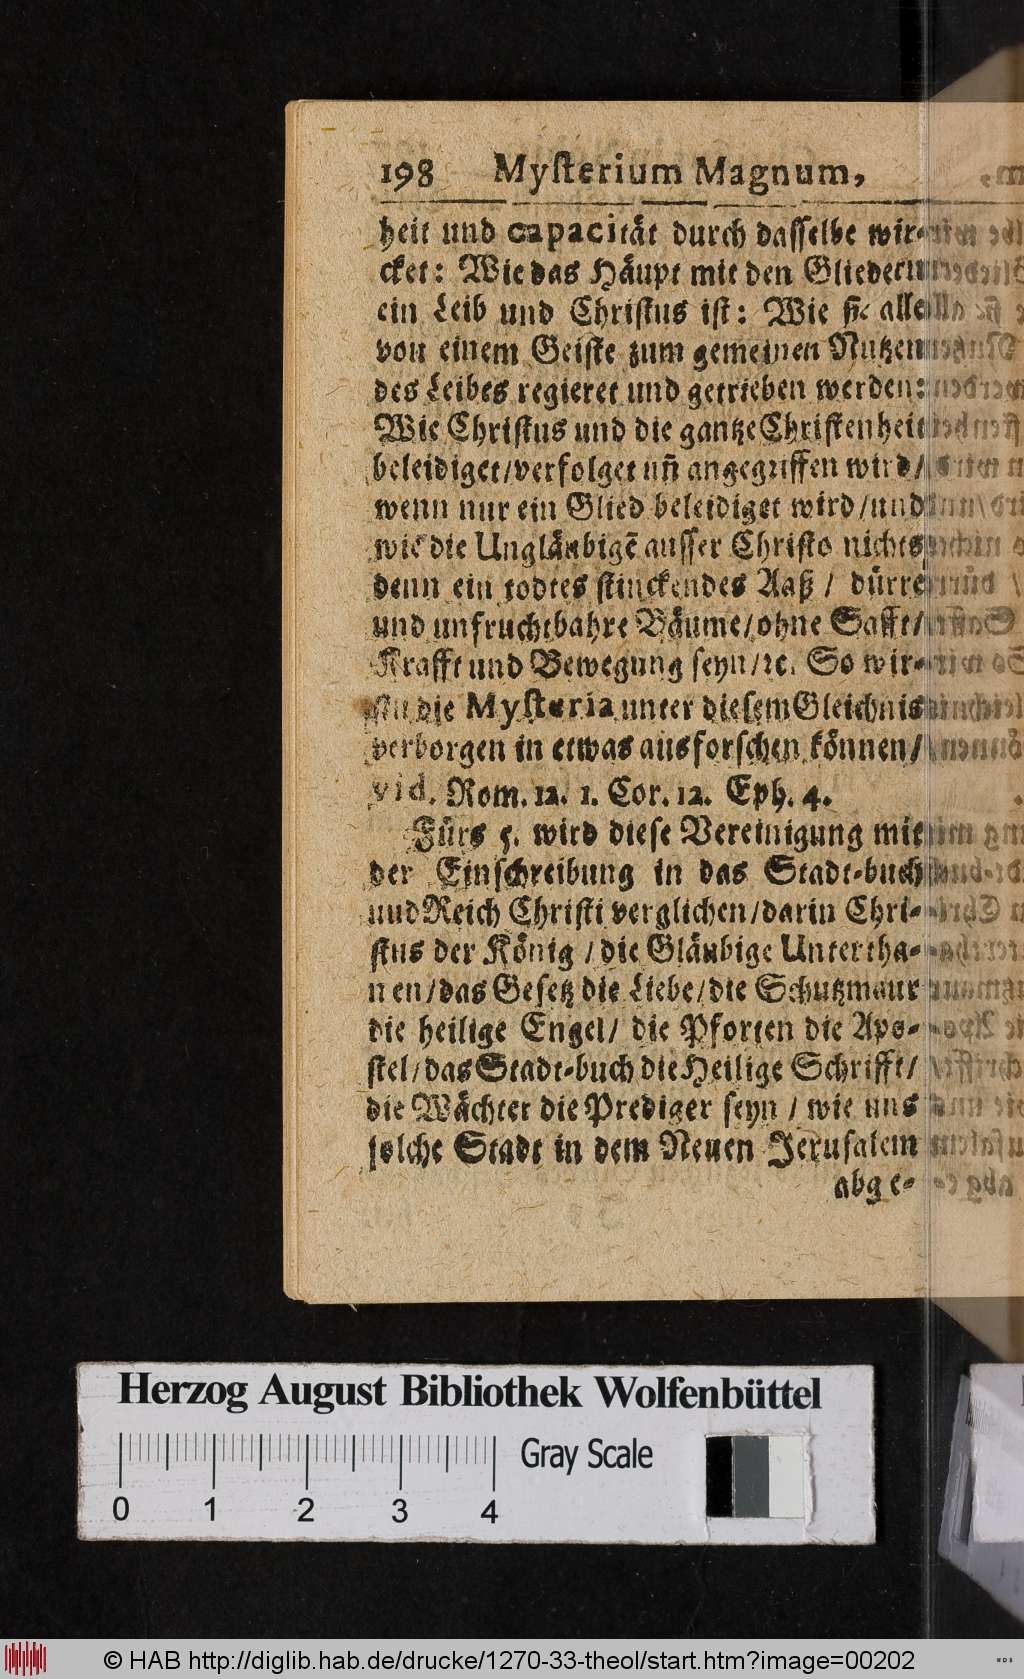 198 Myſterium Magnum,
heit und capacität durch daſſelbe wir-
cket: Wie das Häupt mit den Gliedern
ein Leib und Chriſtus iſt: Wie ſie alle
von einem Geiſte zum gemeinen Nutzen
des Leibes regieret und getrieben werden:
Wie Chriſtus und die gantze Chriſtenheit
beleidiget/verfolget uñ angegriffen wird/
wenn nur ein Glied beleidiget wird/und
wie die Ungläubigẽ auſſer Chriſto nichts
denn ein todtes ſtinckendes Aaß / dürre
und unfruchtbahre Bäume/ohne Safft/
Krafft und Bewegung ſeyn/ꝛc. So wir-
ſtu die Myſteria unter dieſem Gleichnis
verborgen in etwas ausforſchen können/
vid. Rom. 12. 1. Cor. 12. Eph. 4.
Fürs 5. wird dieſe Vereinigung mit
der Einſchreibung in das Stadt-buch
und Reich Chriſti verglichen/darin Chri-
ſtus der König / die Gläubige Untertha-
nen/das Geſetz die Liebe/die Schutzmaur
die heilige Engel/ die Pforten die Apo-
ſtel/das Stadt-buch die Heilige Schrifft/
die Wächter die Prediger ſeyn / wie uns
ſolche Stadt in dem Neuen Jeruſalem
abge-
Herzog August Bibliothek Wolfenbüttel
Gray Scale
0 1 2 3 4
© HAB http://diglib.hab.de/drucke/1270-33-theol/start.htm?image=00202